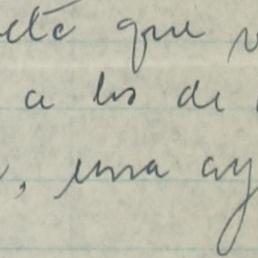 que
a los de
, una ay